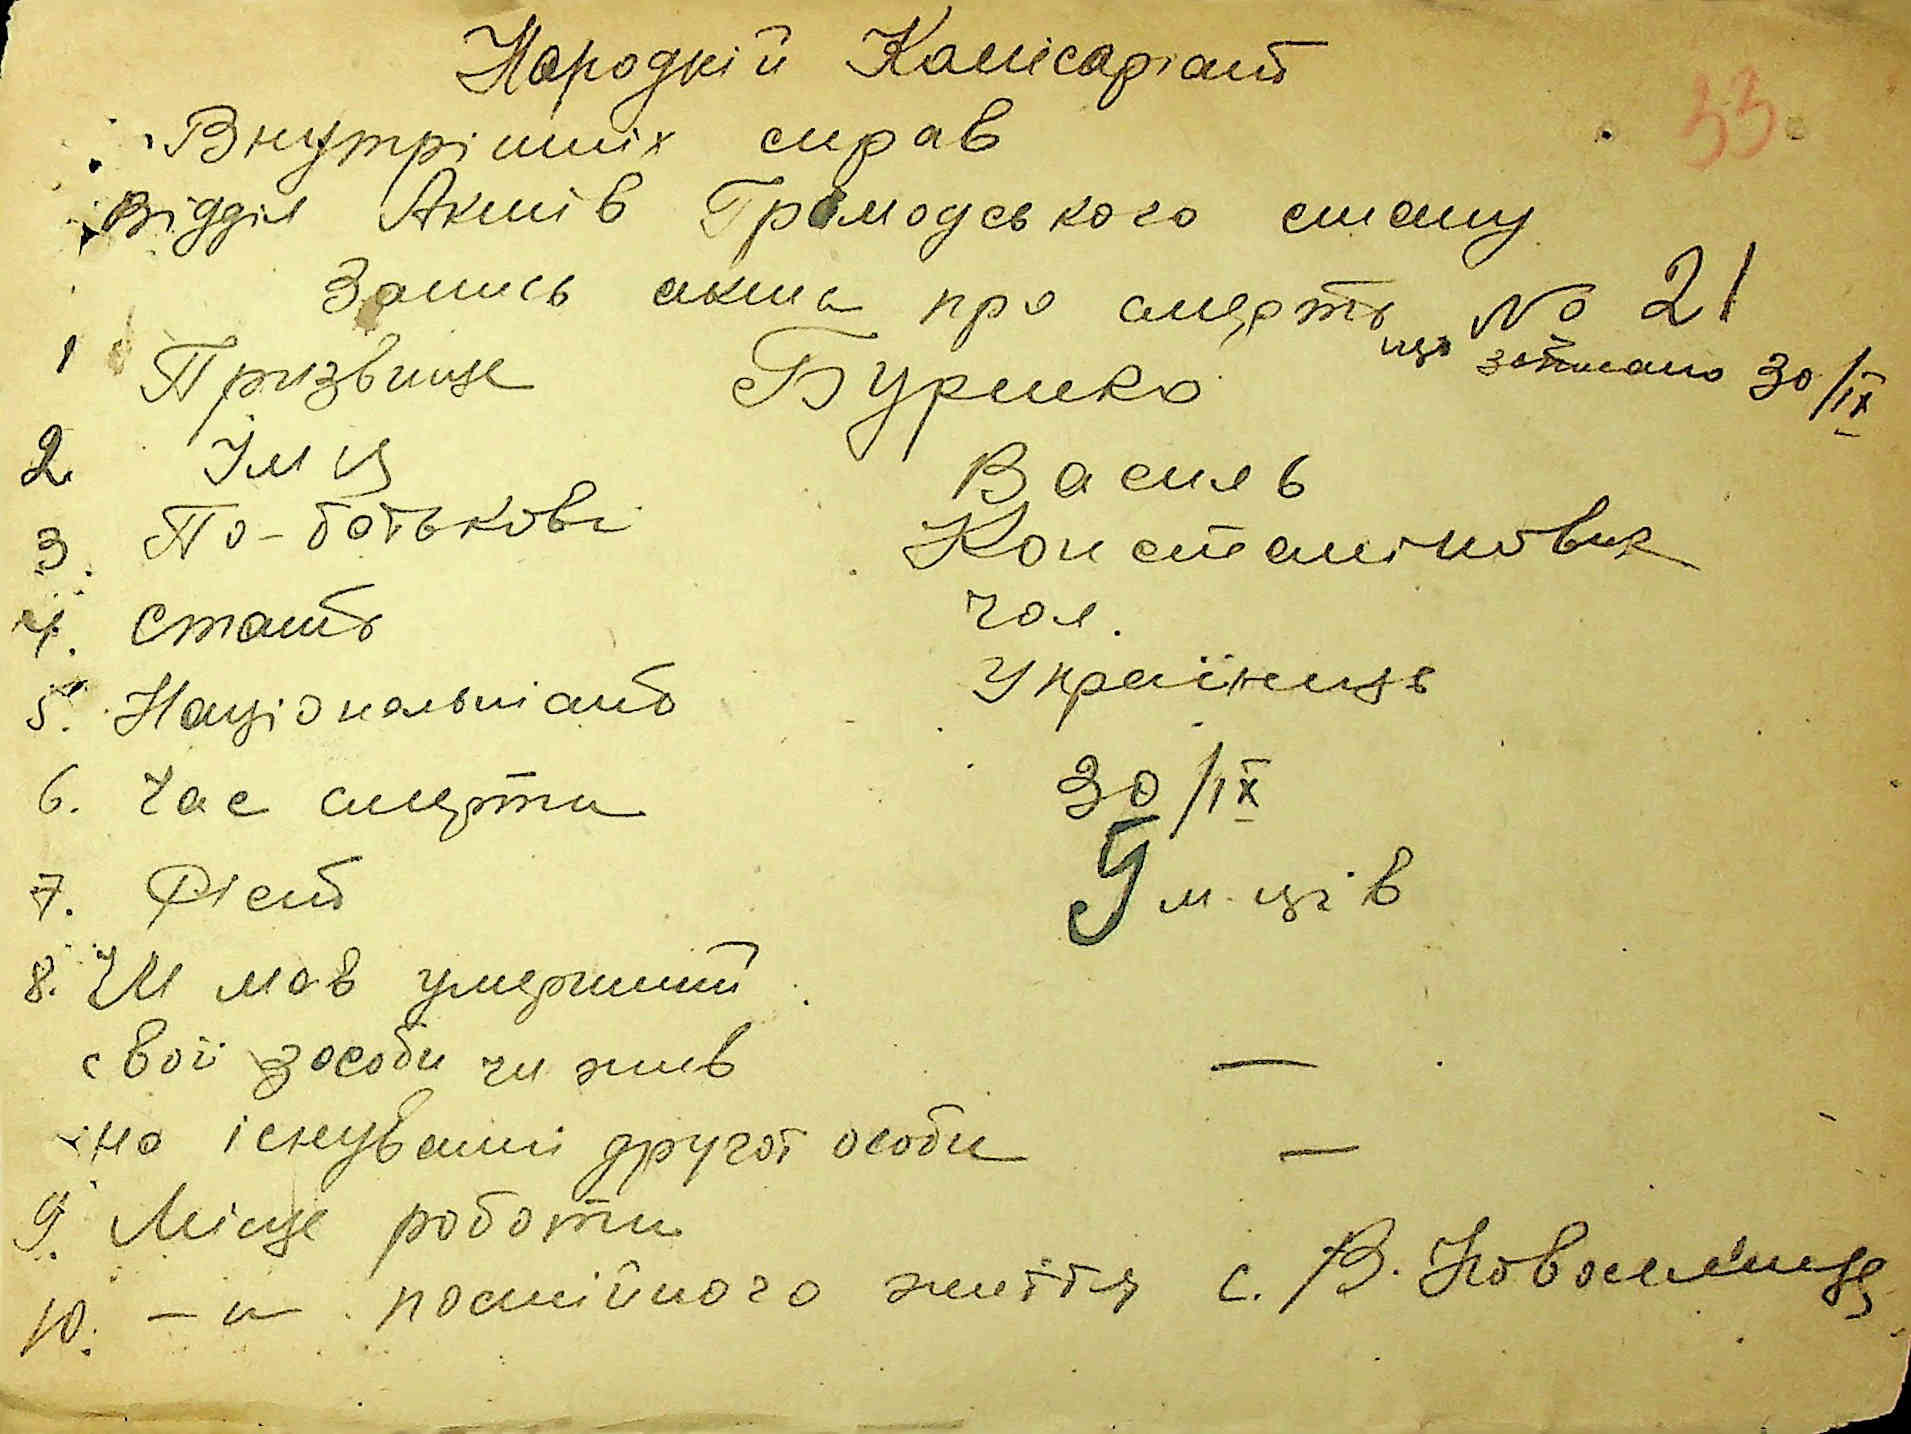 Народній Комісаріат
33
Внутрішніх справ
Відділ Актів Громадського стану
Запись акта про смерть № 21
що записано 30/IX
1 Призвище Буренко
2 Імя Василь
3. По-батькові Константінович
4. Стать чол.
5. Національність Українець
6. Час смерти 30/IX
7. Вієт 9 м-ців
8. Чи мав умерший
свої засоби чи жив —
на існуванні другої особи —
9. Місце роботи
10. – " – постійного життя с. В. Новоселице